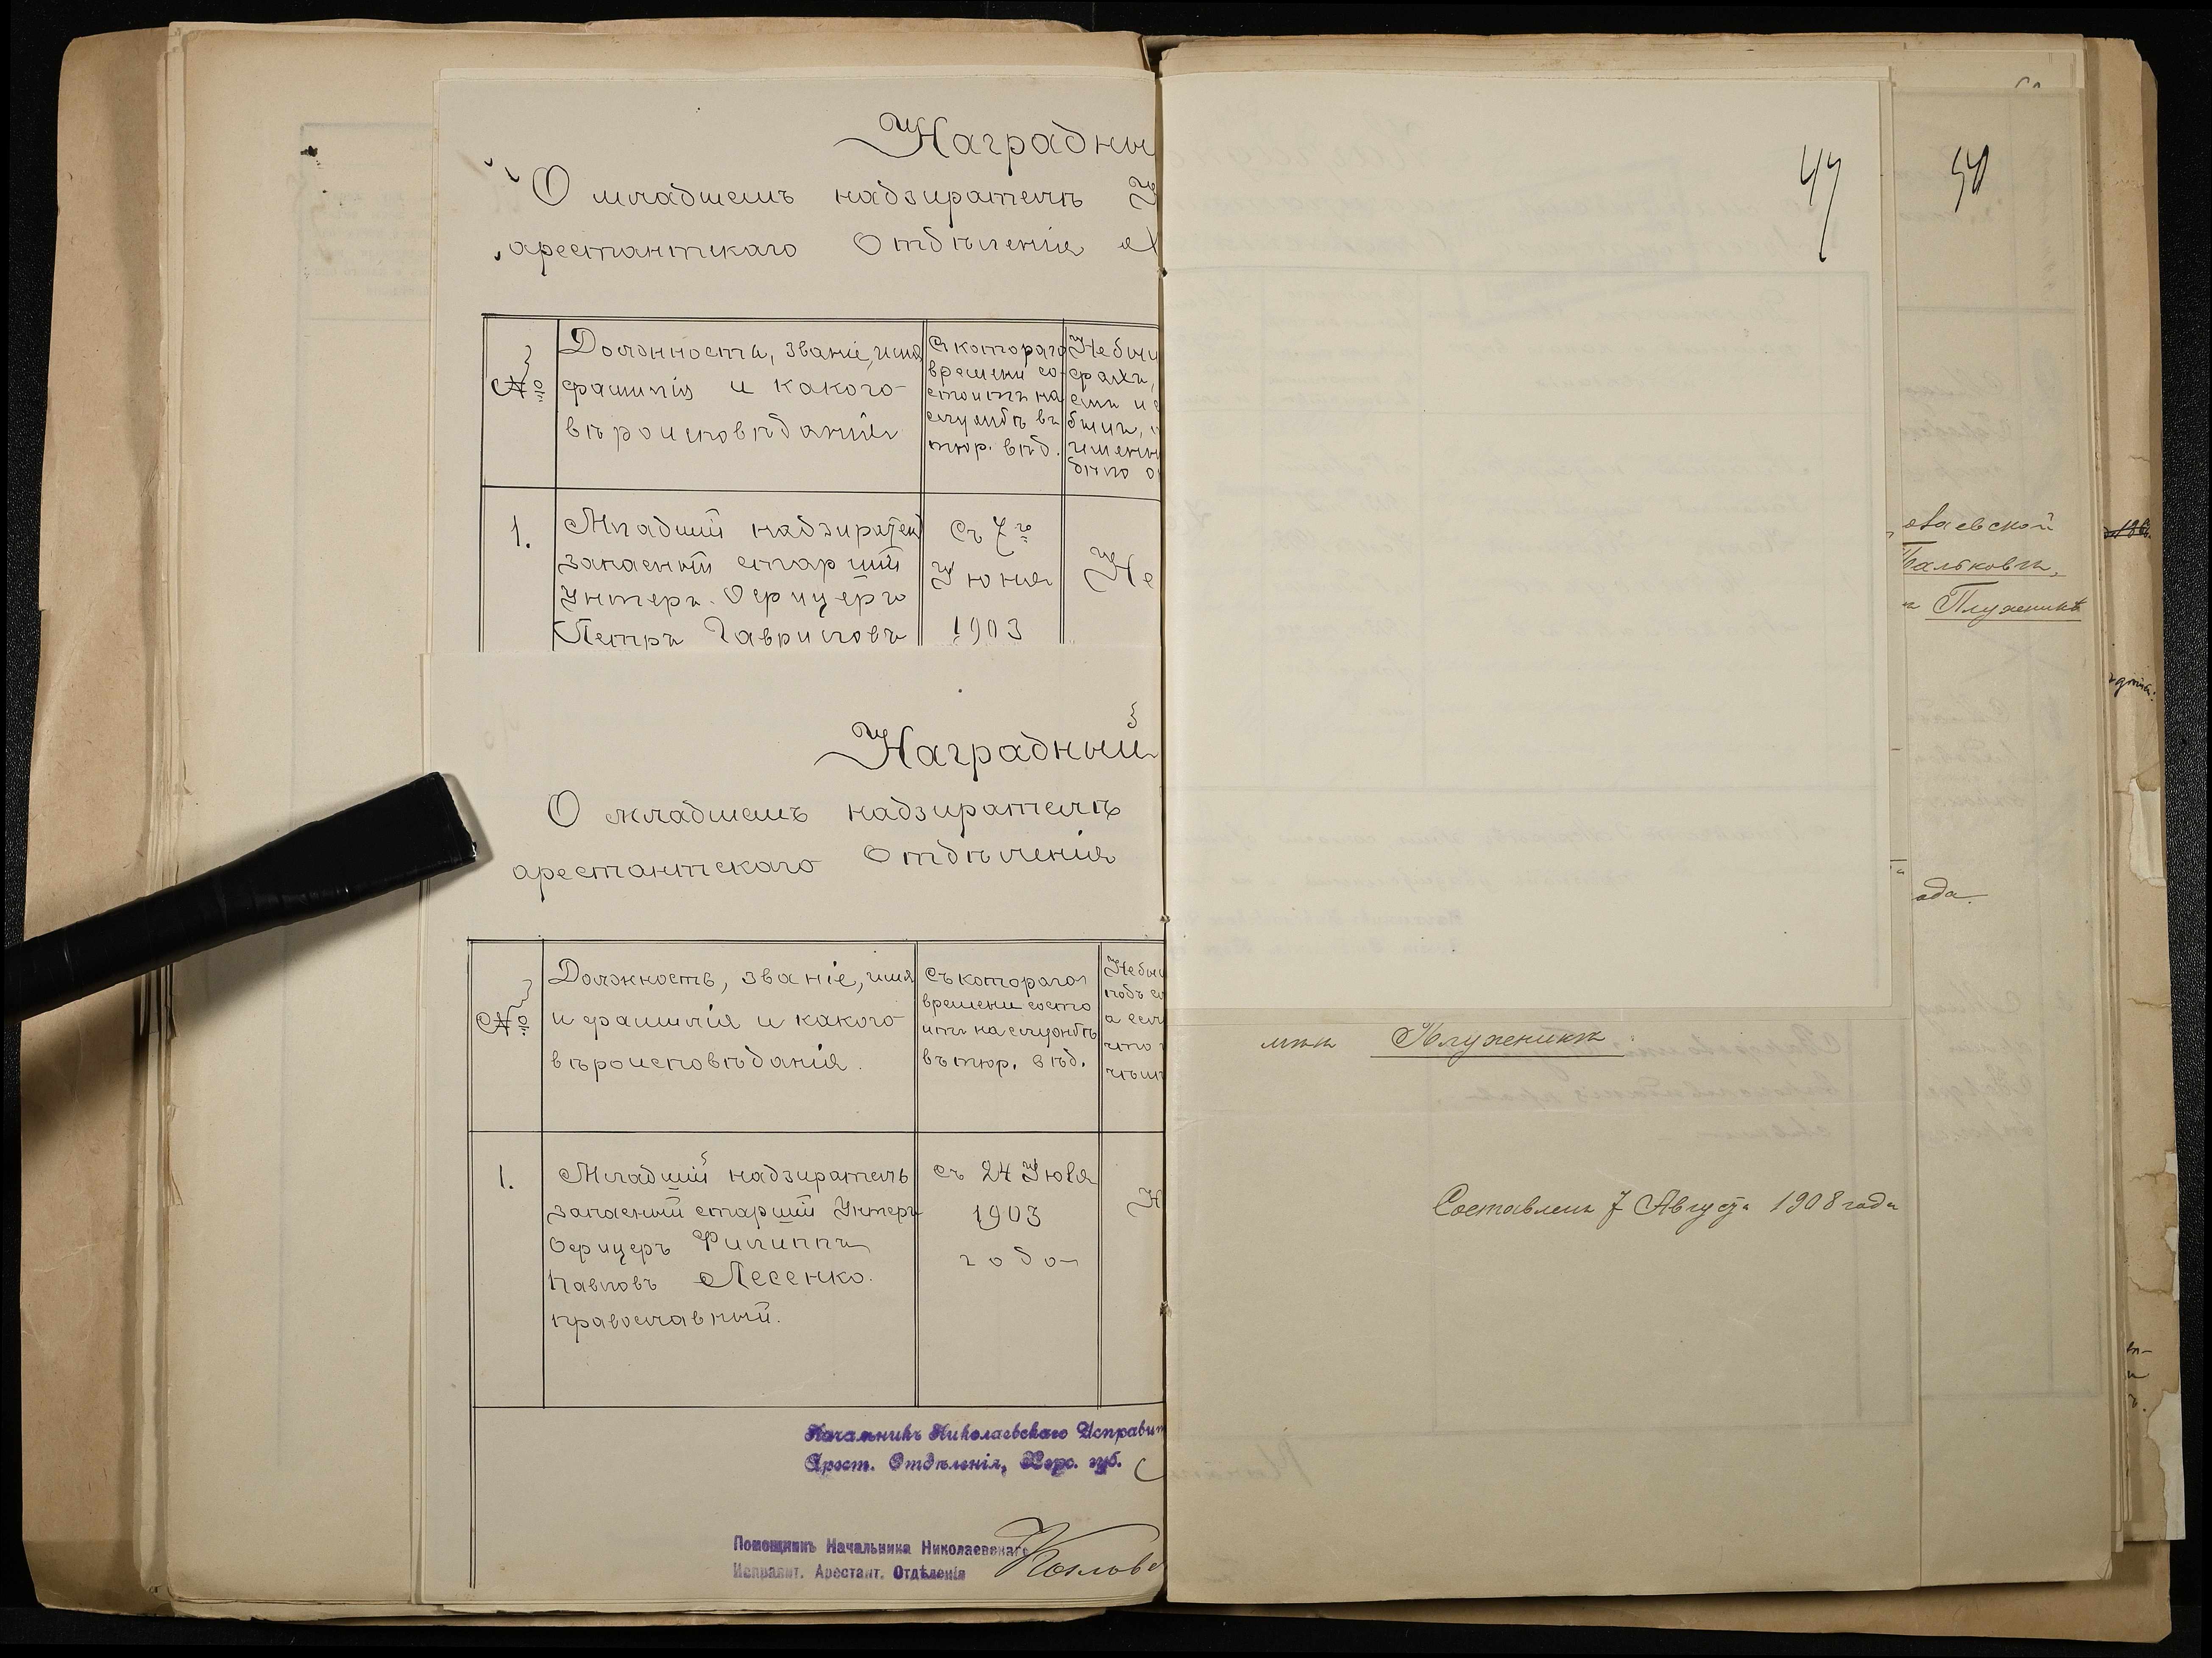 Наградны
О младшемъ надзирателѣ
арестантскаго Отдѣленія
№
Должность, званіе, имя
фамилія и какого
вѣроисповѣданія
Съ котораго
времени со-
стоитъ на
службѣ въ
тюр. вѣд.
Не был
1.
Младшій надзирател
запасный старшій
Унтеръ. Офицеръ
Петръ Гавриловъ
Съ 7го
Іюня
1903
Не
Наградный
О младшемъ надзирателѣ
арестантскаго Отдѣленія
№
Должность, званіе, имя
и фамилія и какого
вѣроисповѣданія.
Съ котораго
времени состо
итъ на службѣ
въ тюр. вѣд.
Не был
подъ су
а есл
что
1.
Младшій надзиратель
запасный старшій Унтеръ
Офицеръ Филиппъ
Павловъ Лесенко.
православный.
съ 24 Іюля
1903
года
Н
Начальникъ Николаевскаго Исправит
Арест. Отдѣленія, Херс. губ.
Помощникъ Начальника Николаевскаго
Исправит. Арестант. Отдѣленія
47
50
Плуженикъ
Составленъ 7 Августа 1908 года
аевской
Плуженикъ
ода.